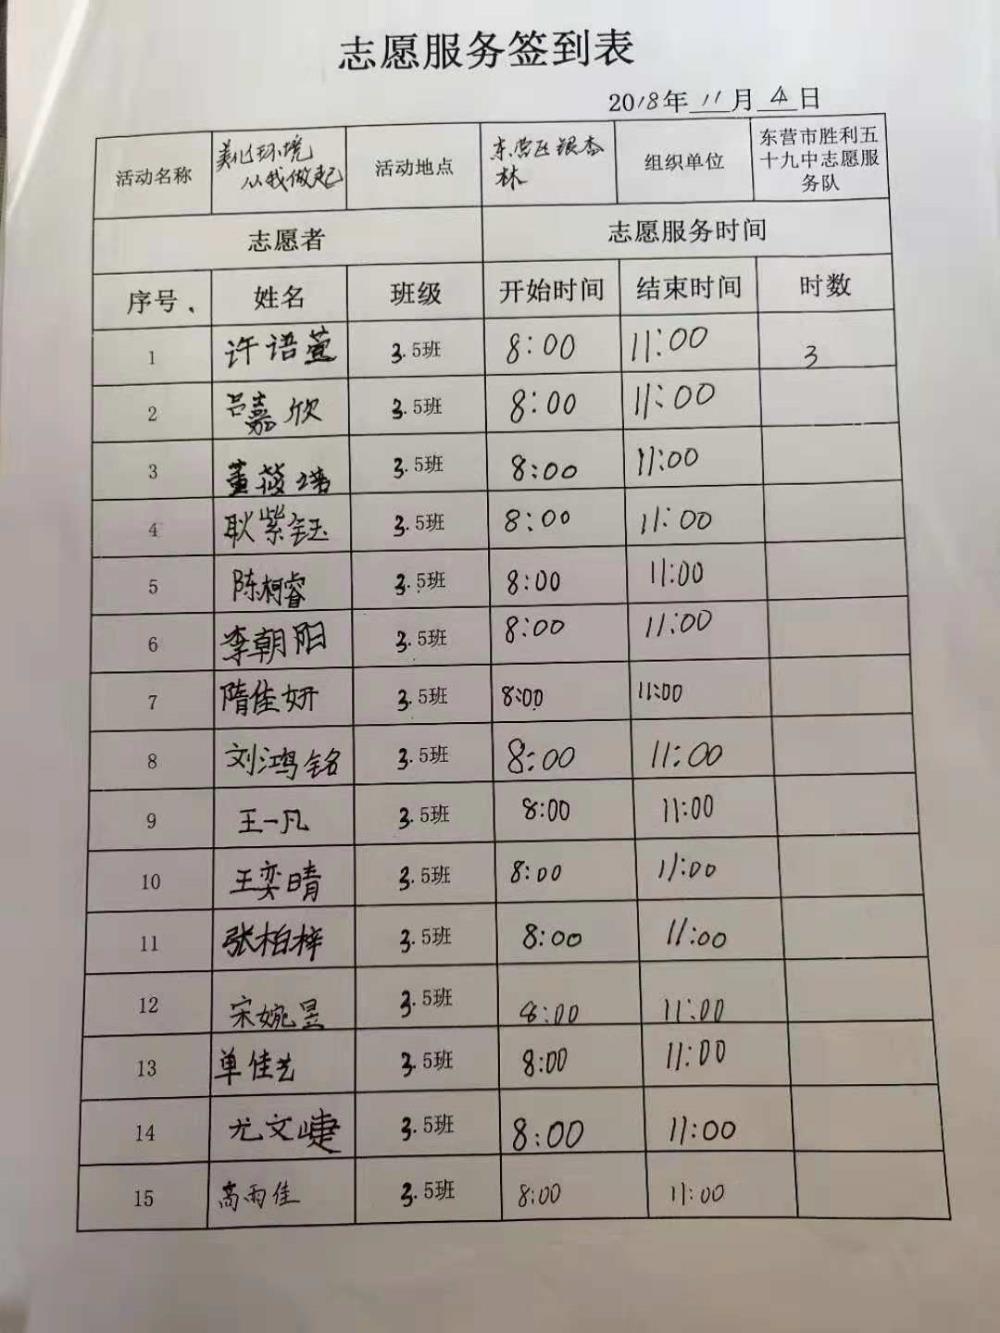 志愿服务签到表
2018年 11 月 4 日
活动名称 美化环境 从我做起 活动地点 东营区银杏林 组织单位 东营市胜利五十九中志愿服务队
志愿者 志愿服务时间
序号、 姓名 班级 开始时间 结束时间 时数
1 许语萱 3.5班 8:00 11:00 3
2 吕嘉欣 3.5班 8:00 11:00
3 董筱 3.5班 8:00 11:00
4 耿紫钰 3.5班 8:00 11:00
5 陈柯睿 3.5班 8:00 11:00
6 李朝阳 3.5班 8:00 11:00
7 隋佳妍 3.5班 8:00 11:00
8 刘鸿铭 3.5班 8:00 11:00
9 王一凡 3.5班 8:00 11:00
10 王奕晴 3.5班 8:00 11:00
11 张柏梓 3.5班 8:00 11:00
12 宋婉昱 3.5班 8:00 11:00
13 单佳艺 3.5班 8:00 11:00
14 尤文崨 3.5班 8:00 11:00
15 高雨佳 3.5班 8:00 11:00